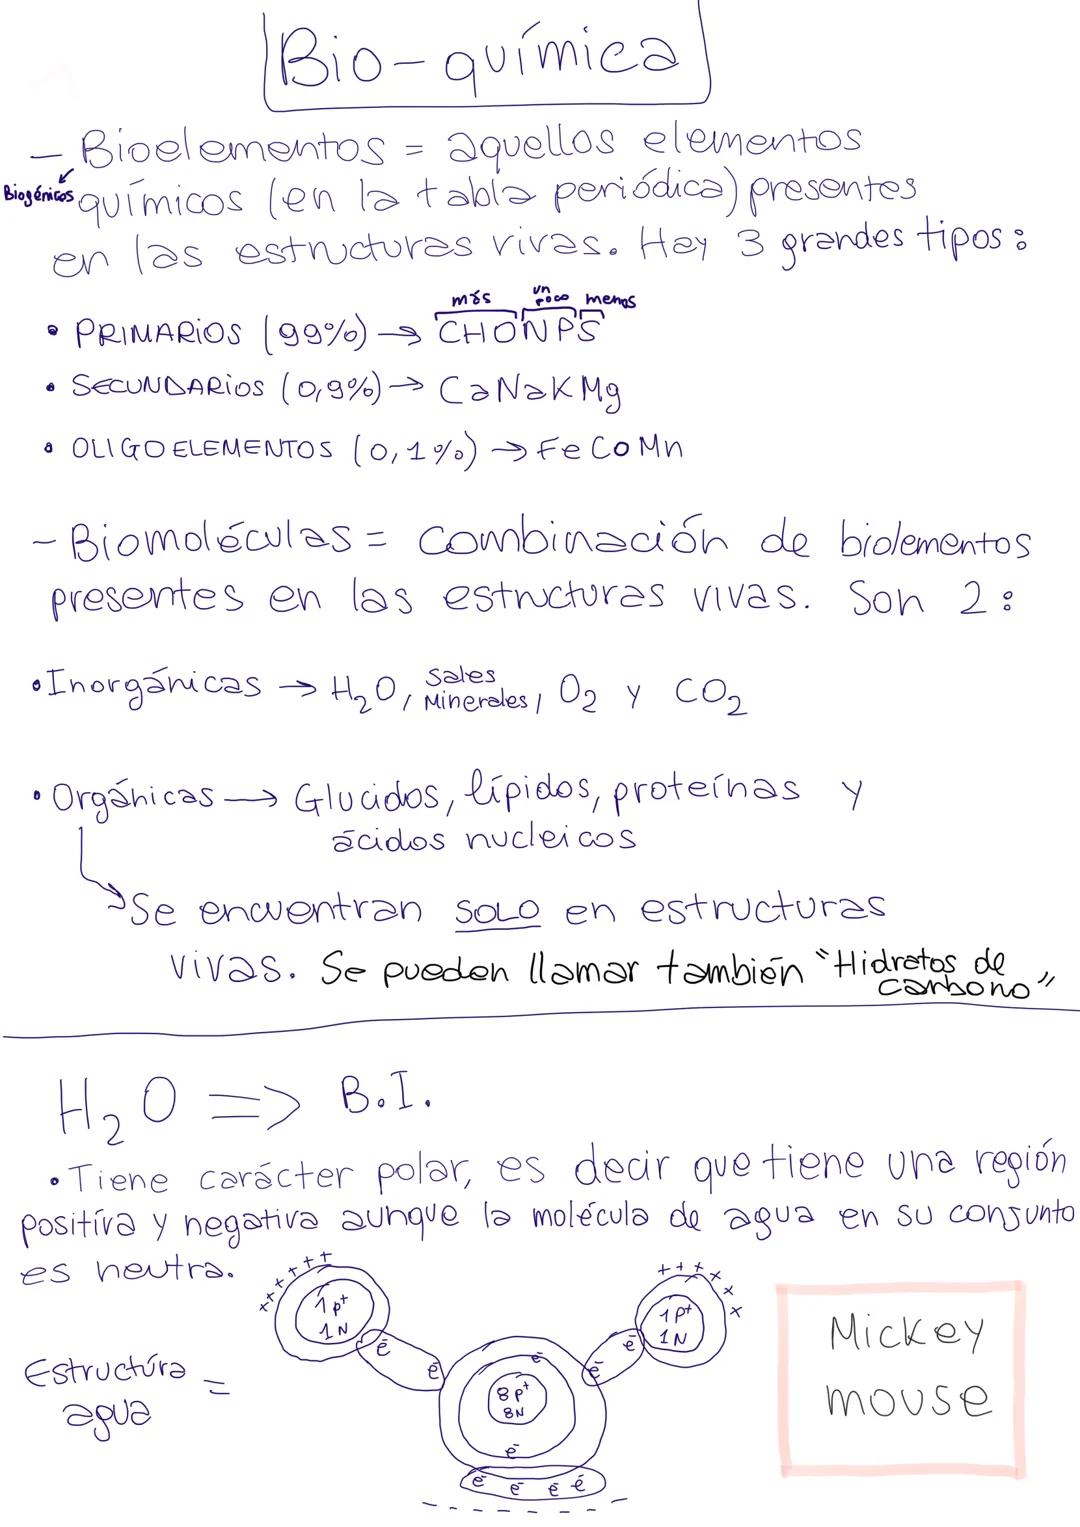 Bio-química
- Bioelementos = aquellos elementos
Biogénicos
químicos (en la tabla periódica) presentes
en las estructuras vivas. Hay 3 grandes tipos:
más un poco menos
• PRIMARIOS (99%) → CHONPS
• SECUNDARIOS (0,9%) → CaNaKMg
• OLIGOELEMENTOS (0,1%) → FeCoMn
- Biomoléculas = combinación de biolementos
presentes en las estructuras vivas. Son 2:
• Inorgánicas → H₂O, Sales Minerales, O₂ y CO₂
• Orgánicas → Glucidos, lípidos, proteínas y
ácidos nucleicos
Se encuentran SOLO en estructuras
vivas. Se pueden llamar también "Hidratos de
carbono"
H₂O => B.I.
• Tiene carácter polar, es decir que tiene una región
positíva y negativa aunque la molécula de agua en su conjunto
es neutra.
+++++++
+++++++
1p⁺
1N
1p⁺
1N
e⁻
e⁻
e⁻
e⁻
Estructúra
agua =
e⁻
8p⁺
8N
e⁻
e⁻ e⁻ e⁻ e⁻
- - - - - - - -
Mickey
mouse